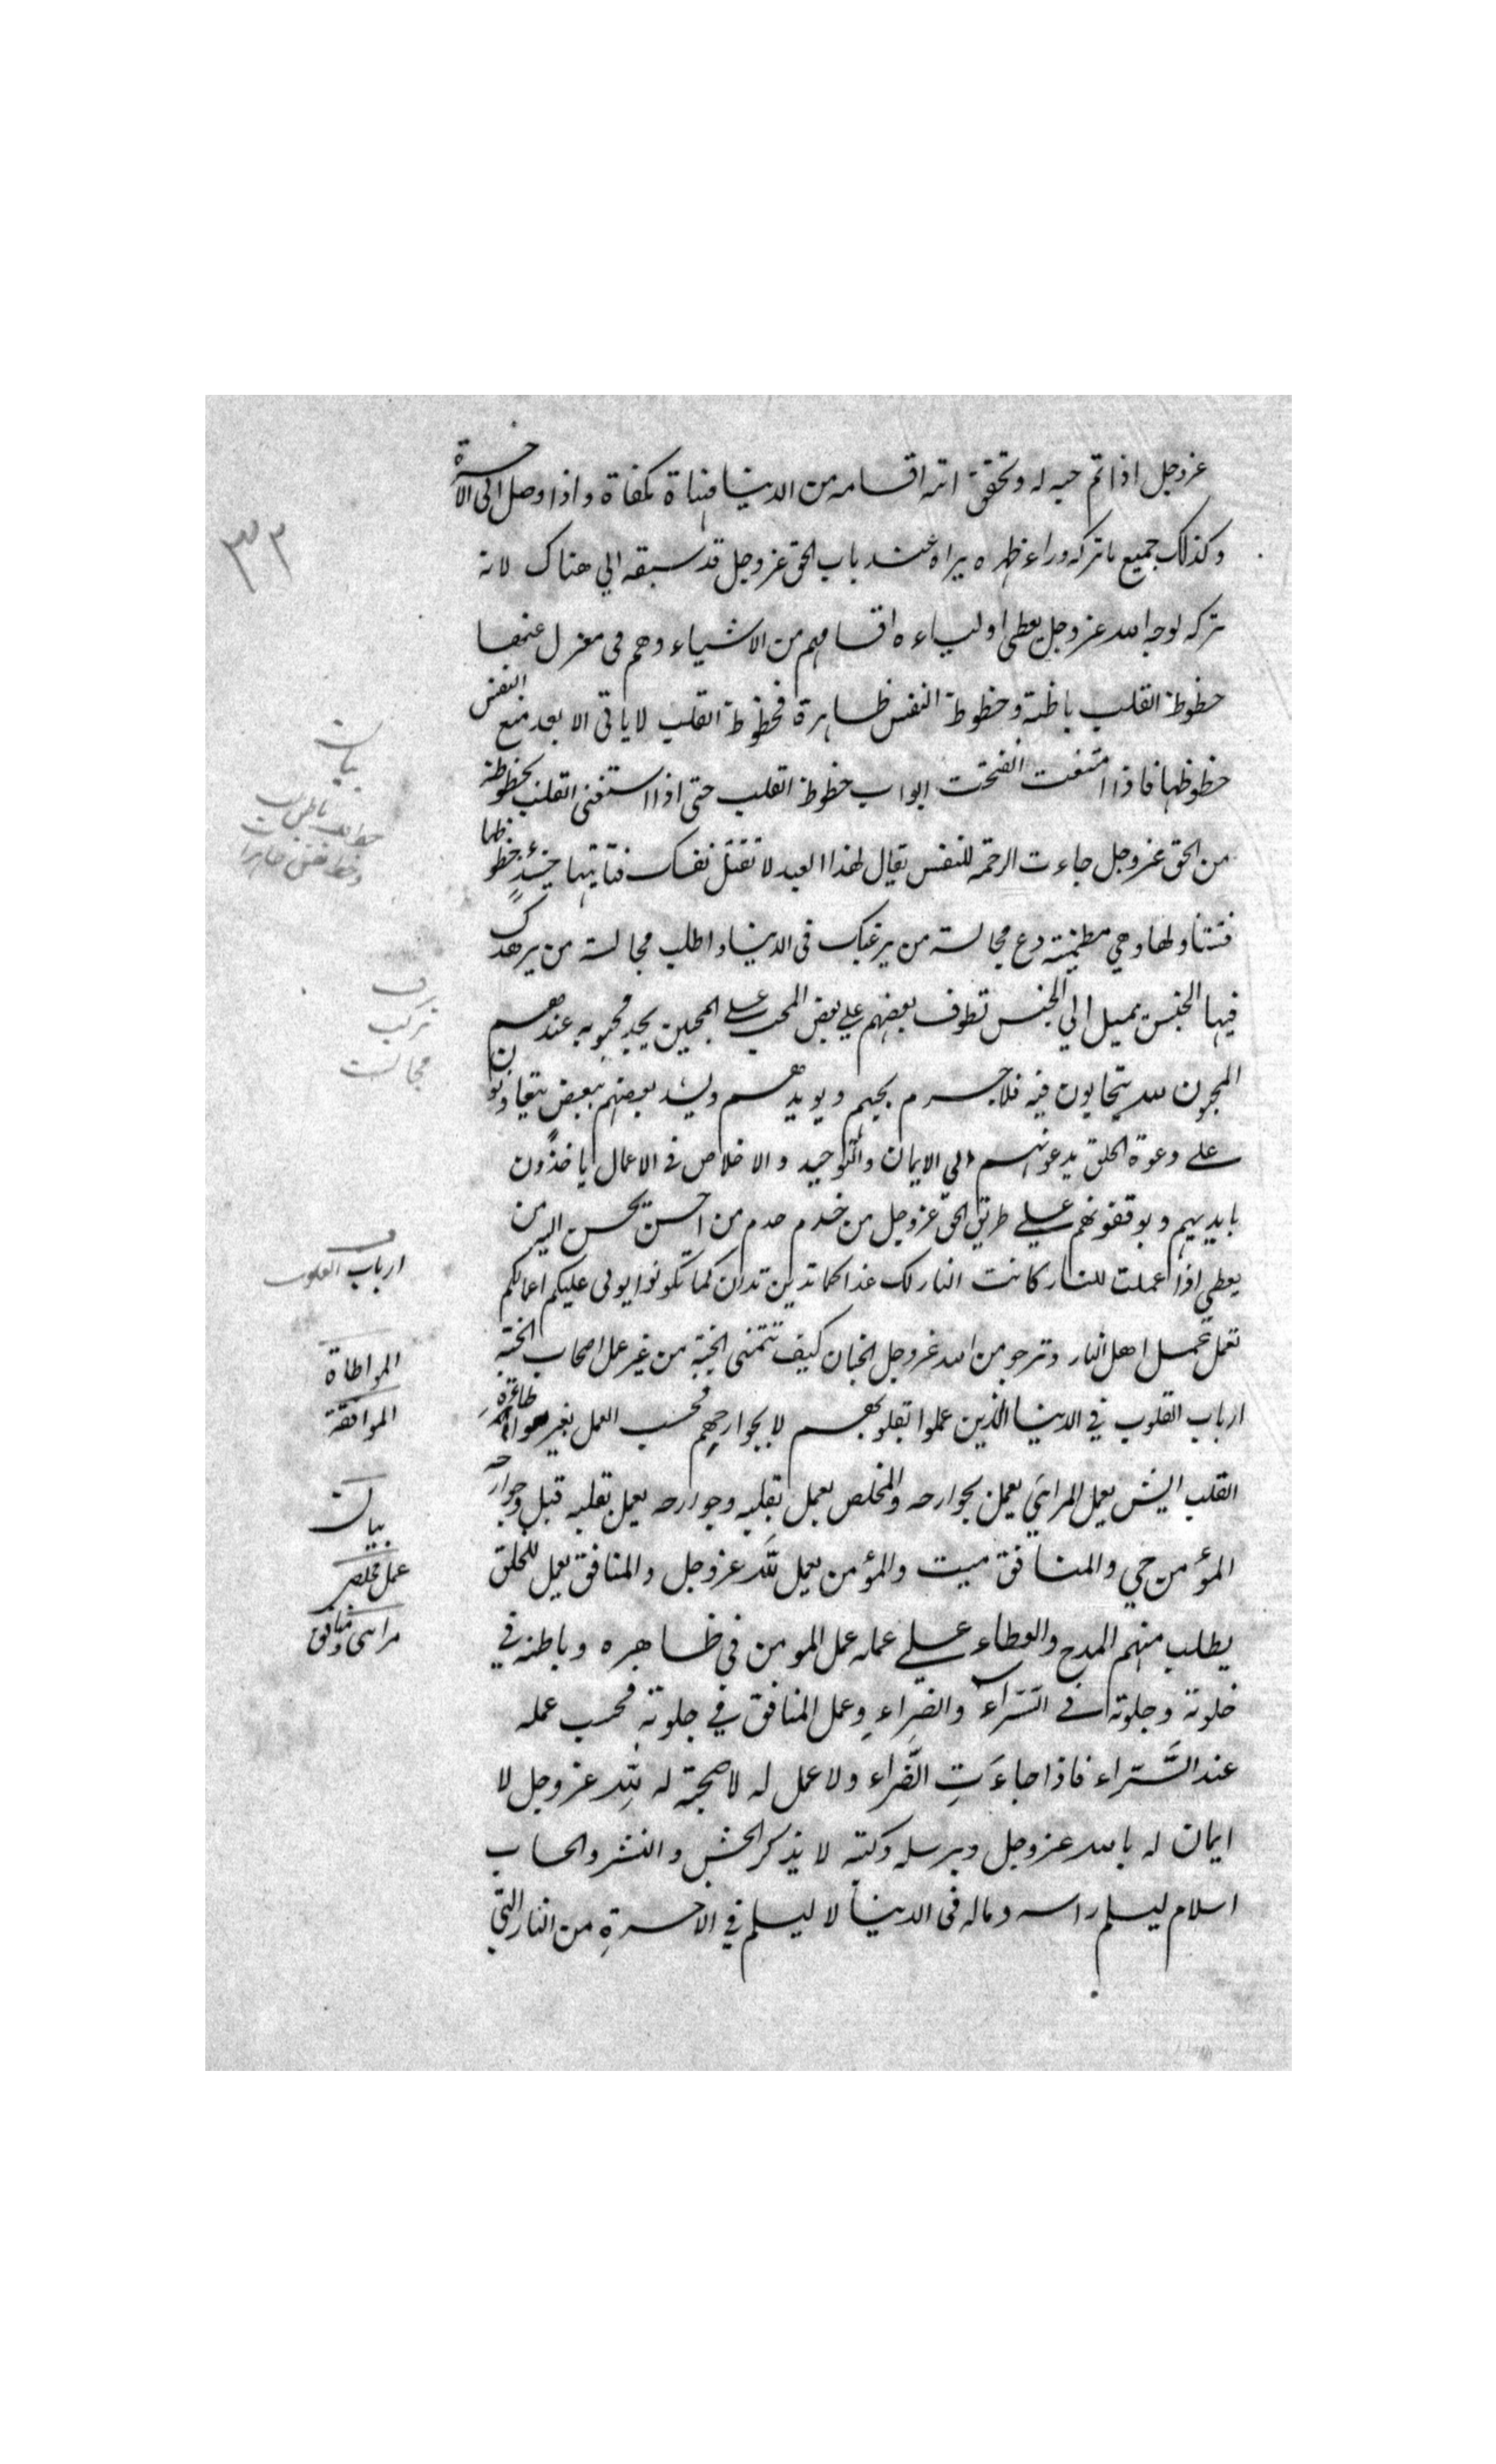 عزوجل اذا تم حبه له وتحقق اتته اقسامه من الدنيا مهناة مكفاة واذا وصل الى الآخرة
وكذلك جميع ما تركه وراء ظهره يراه عند باب الحق عزوجل قد سبقه الي هناك لانه
تركه لوجه الله عزوجل يعطي اولياءه اقسامهم من الاشياء وهم في معزل عنها
حظوظ القلب باطنة وحظوظ النفس ظاهرة فحظوظ القلب لا ياتي الا بعد منع النفس
حظوظها فاذا امتنعت انفتحت ابواب حظوظ القلب حتى اذا استغنى القلب بحظوظه
من الحق عزوجل جاءت الرحمة للنفس يقال لهذا العبد لا تقتل نفسك فتاتيها حينئذٍ حظوظها
فتتناولها وهي مطمئنة دع مجالسة من يرغبك في الدنيا واطلب مجالسة من يزهدك
فيها الجنس يميل الي الجنس تطوف بعضهم علي بعض المحب علي المحبين يجد محبوبه عندهم
المحبون لله يتحابون فيه فلا جرم يحبهم ويويدهم ويشد بعضهم ببعض يتعاونون
علي دعوة الخلق يدعونهم الي الايمان والتوحيد والاخلاص في الاعمال ياخذون
بايديهم ويوقفونهم علي طريق الحق عزوجل من خدم خدم من احسن يحسن اليه من
يعطي اذا عملت للنار كانت النار لك غدا كما تدين تدان كما تكونوا يولى عليكم اعمالكم
تعمل عمل اهل النار وترجو من الله عزوجل الجنان كيف تتمنى الجنة من غير عمل اصحاب الجنة
ارباب القلوب في الدنيا الذين عملوا بقلوبهم لا بجوارحهم فحسب العمل بغير مواطاة
القلب ايش يعمل المرائي يعمل بجوارحه والمخلص يعمل بقلبه وجوارحه يعمل بقلبه قبل جوارحه
المؤمن حي والمنافق ميت والمؤمن يعمل لله عزوجل والمنافق يعمل للخلق
يطلب منهم المدح والعطاء علي عمله عمل المومن في ظاهره وباطنه في
خلوته وجلوته في السَّرَآء والضراءِ وعمل المنافق في جلوته فحسب عمله
عند السَّراء فاذا جاءَتِ الضَّراء ولا عمل له لا صحبة له لِلّه عزوجل لا
ايمان له بالله عزوجل وبرسله وكتبه لا يذكر الحشر والنشر والحساب
اسلام ليسلم راسه وماله في الدنيا لا ليسلم في الاخرةِ من النار التي
٣٢
بيان
ترك
مجالست
ارباب القلوب
المواطاة
الموافقة
بيان
عمل مخلص
مرائى ومنافق